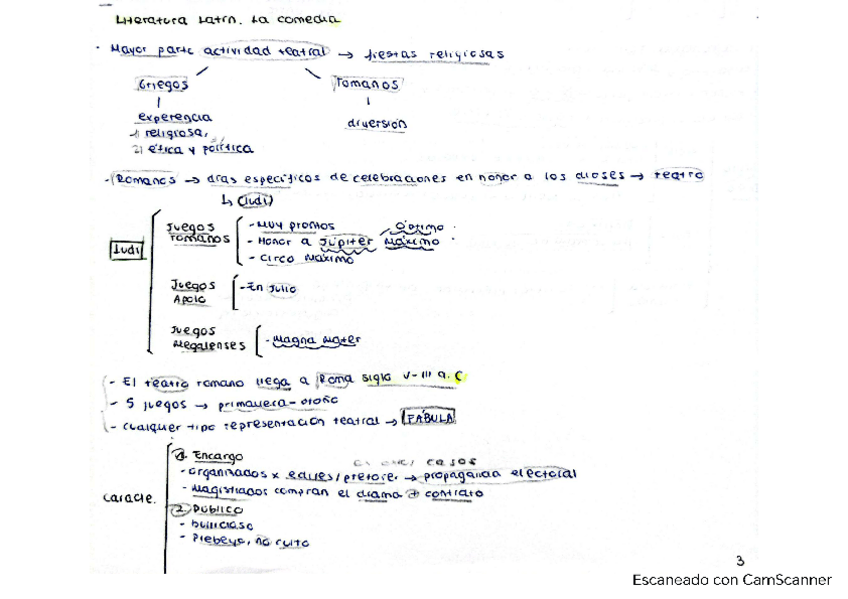 Literatura Latin. La comedia
· Mayor parte actividad teatral → fiestas religiosas
Griegos
romanos
experencia
1) religiosa,
2) ética y política
diversión
- Romanos → días específicos de celebraciones en honor a los dioses → teatro
↳ (ludi)
Ludi
Juegos romanos
- Muy prontos
- Honor a Júpiter Óptimo Máximo
- Circo Máximo
Juegos Apolo
- En Julio
Juegos Megalenses
- Magna Mater
- El teatro romano llega a Roma siglo V-III a.C
- 5 juegos → primavera-otoño
- cualquier tipo representación teatral → FÁBULA
Caracte.
1. Encargo
casos
- organizados x ediles/pretores → propaganda electoral
- Magistrados compran el drama + contrato
2. Público
- bullicioso
- Plebeyo, no culto
3
Escaneado con CamScanner